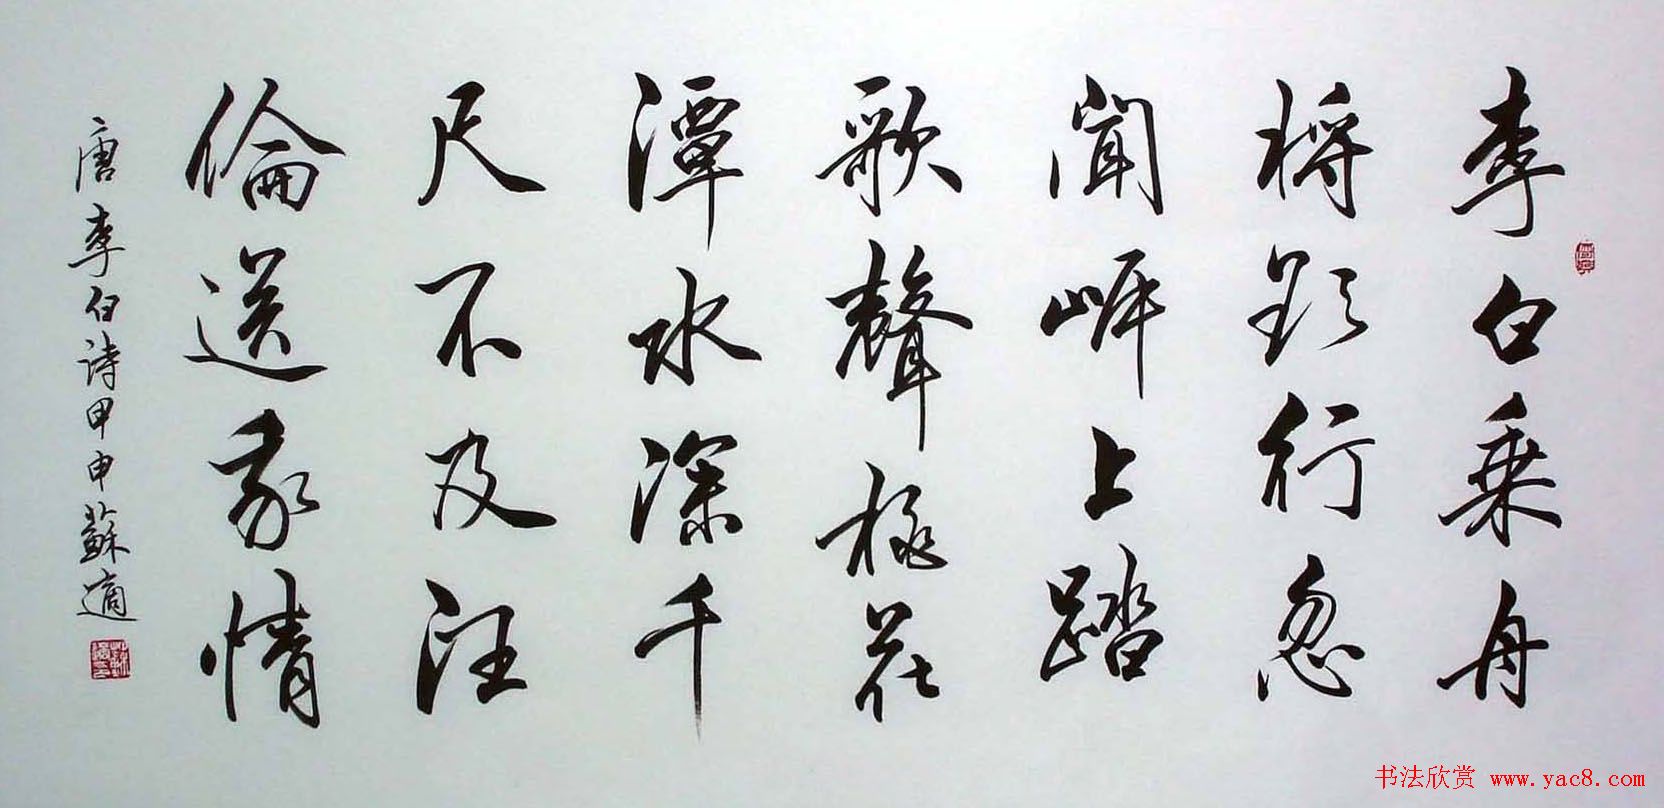 李白乘舟
将欲行忽
聞岸上踏
歌聲桃花
潭水深千
尺不及汪
倫送我情
唐李白詩甲申蘇適
书法欣赏 www.yac8.com